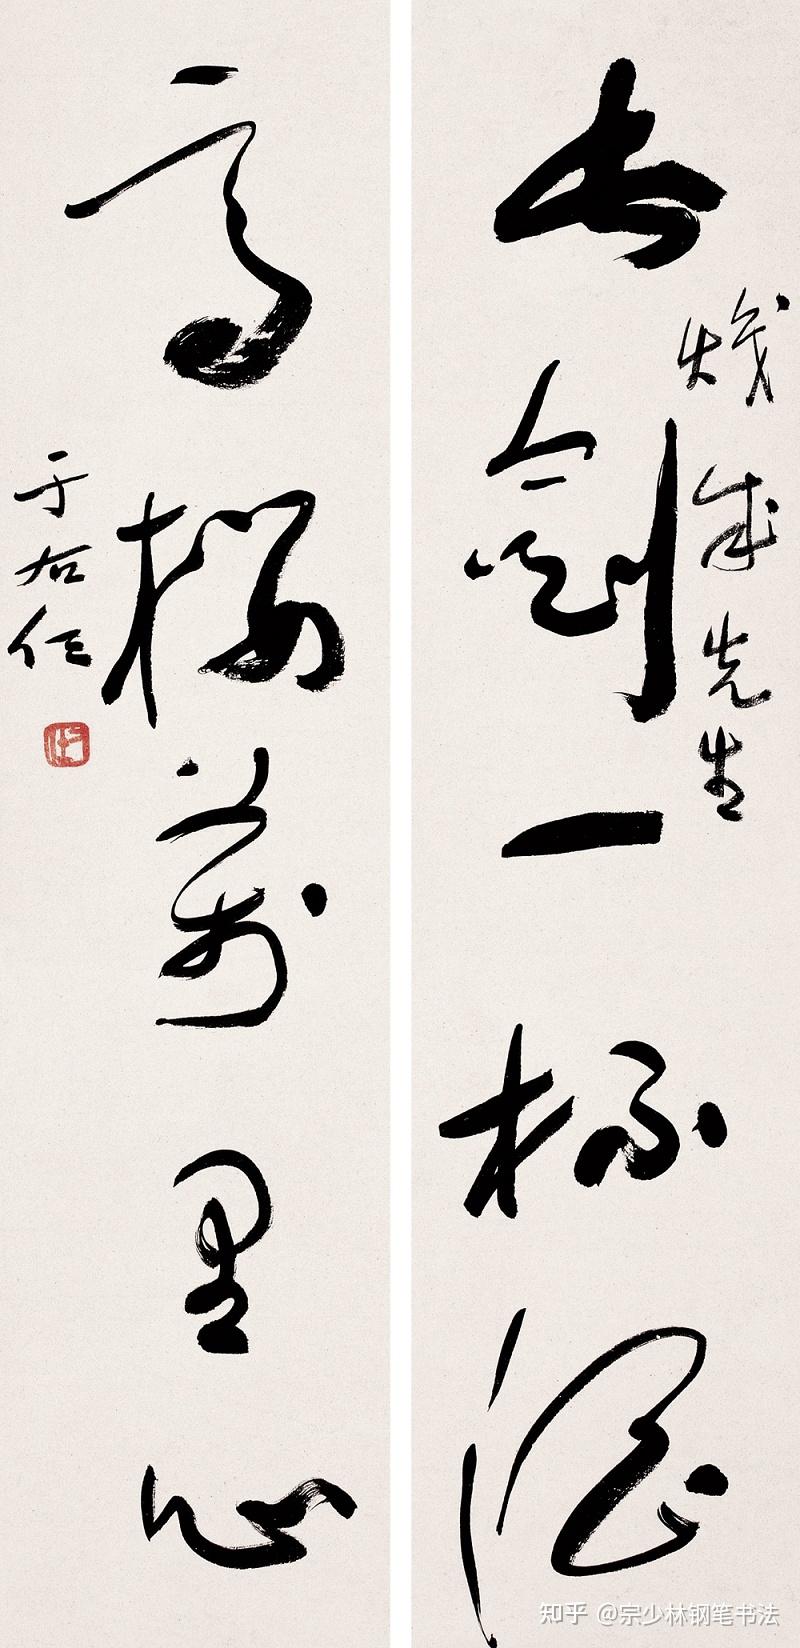 长剑一杯酒
炽成先生
高楼万里心
于右任
知乎 @宗少林钢笔书法